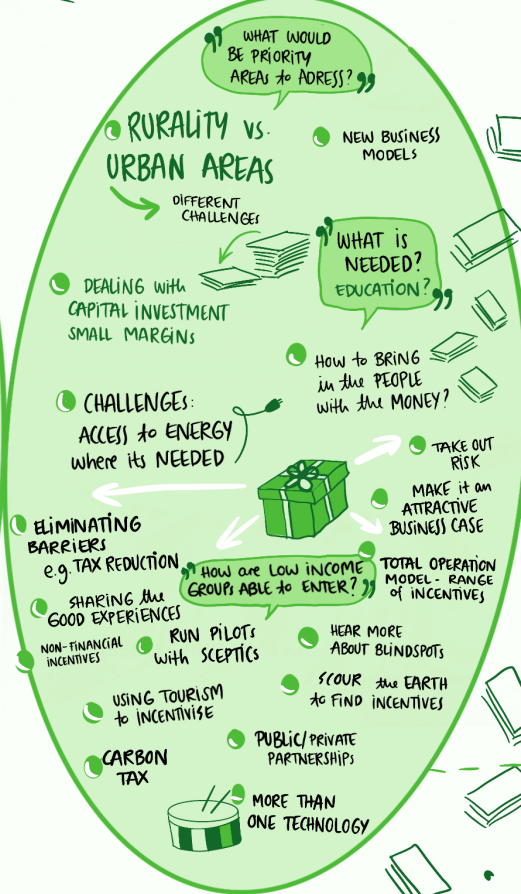 WHAT WOULD
BE PRIORITY
AREAS to ADRESS?
RURALITY vs.
URBAN AREAS
DIFFERENT
CHALLENGES
NEW BUSINESS
MODELS
WHAT IS
NEEDED?
EDUCATION?
DEALING with
CAPITAL INVESTMENT
SMALL MARGINS
HOW to BRING
in the PEOPLE
with the MONEY?
CHALLENGES:
ACCESS to ENERGY
where its NEEDED
TAKE OUT
RISK
MAKE it an
ATTRACTIVE
BUSINESS CASE
ELIMINATING
BARRIERS
e.g. TAX REDUCTION
HOW are LOW INCOME
GROUPS ABLE to ENTER?
TOTAL OPERATION
MODEL - RANGE
of INCENTIVES
SHARING the
GOOD EXPERIENCES
NON-FINANCIAL
INCENTIVES
RUN PILOTS
with SCEPTICS
HEAR MORE
ABOUT BLINDSPOTS
USING TOURISM
to INCENTIVISE
SCOUR the EARTH
to FIND INCENTIVES
CARBON
TAX
PUBLIC/PRIVATE
PARTNERSHIPS
MORE THAN
ONE TECHNOLOGY